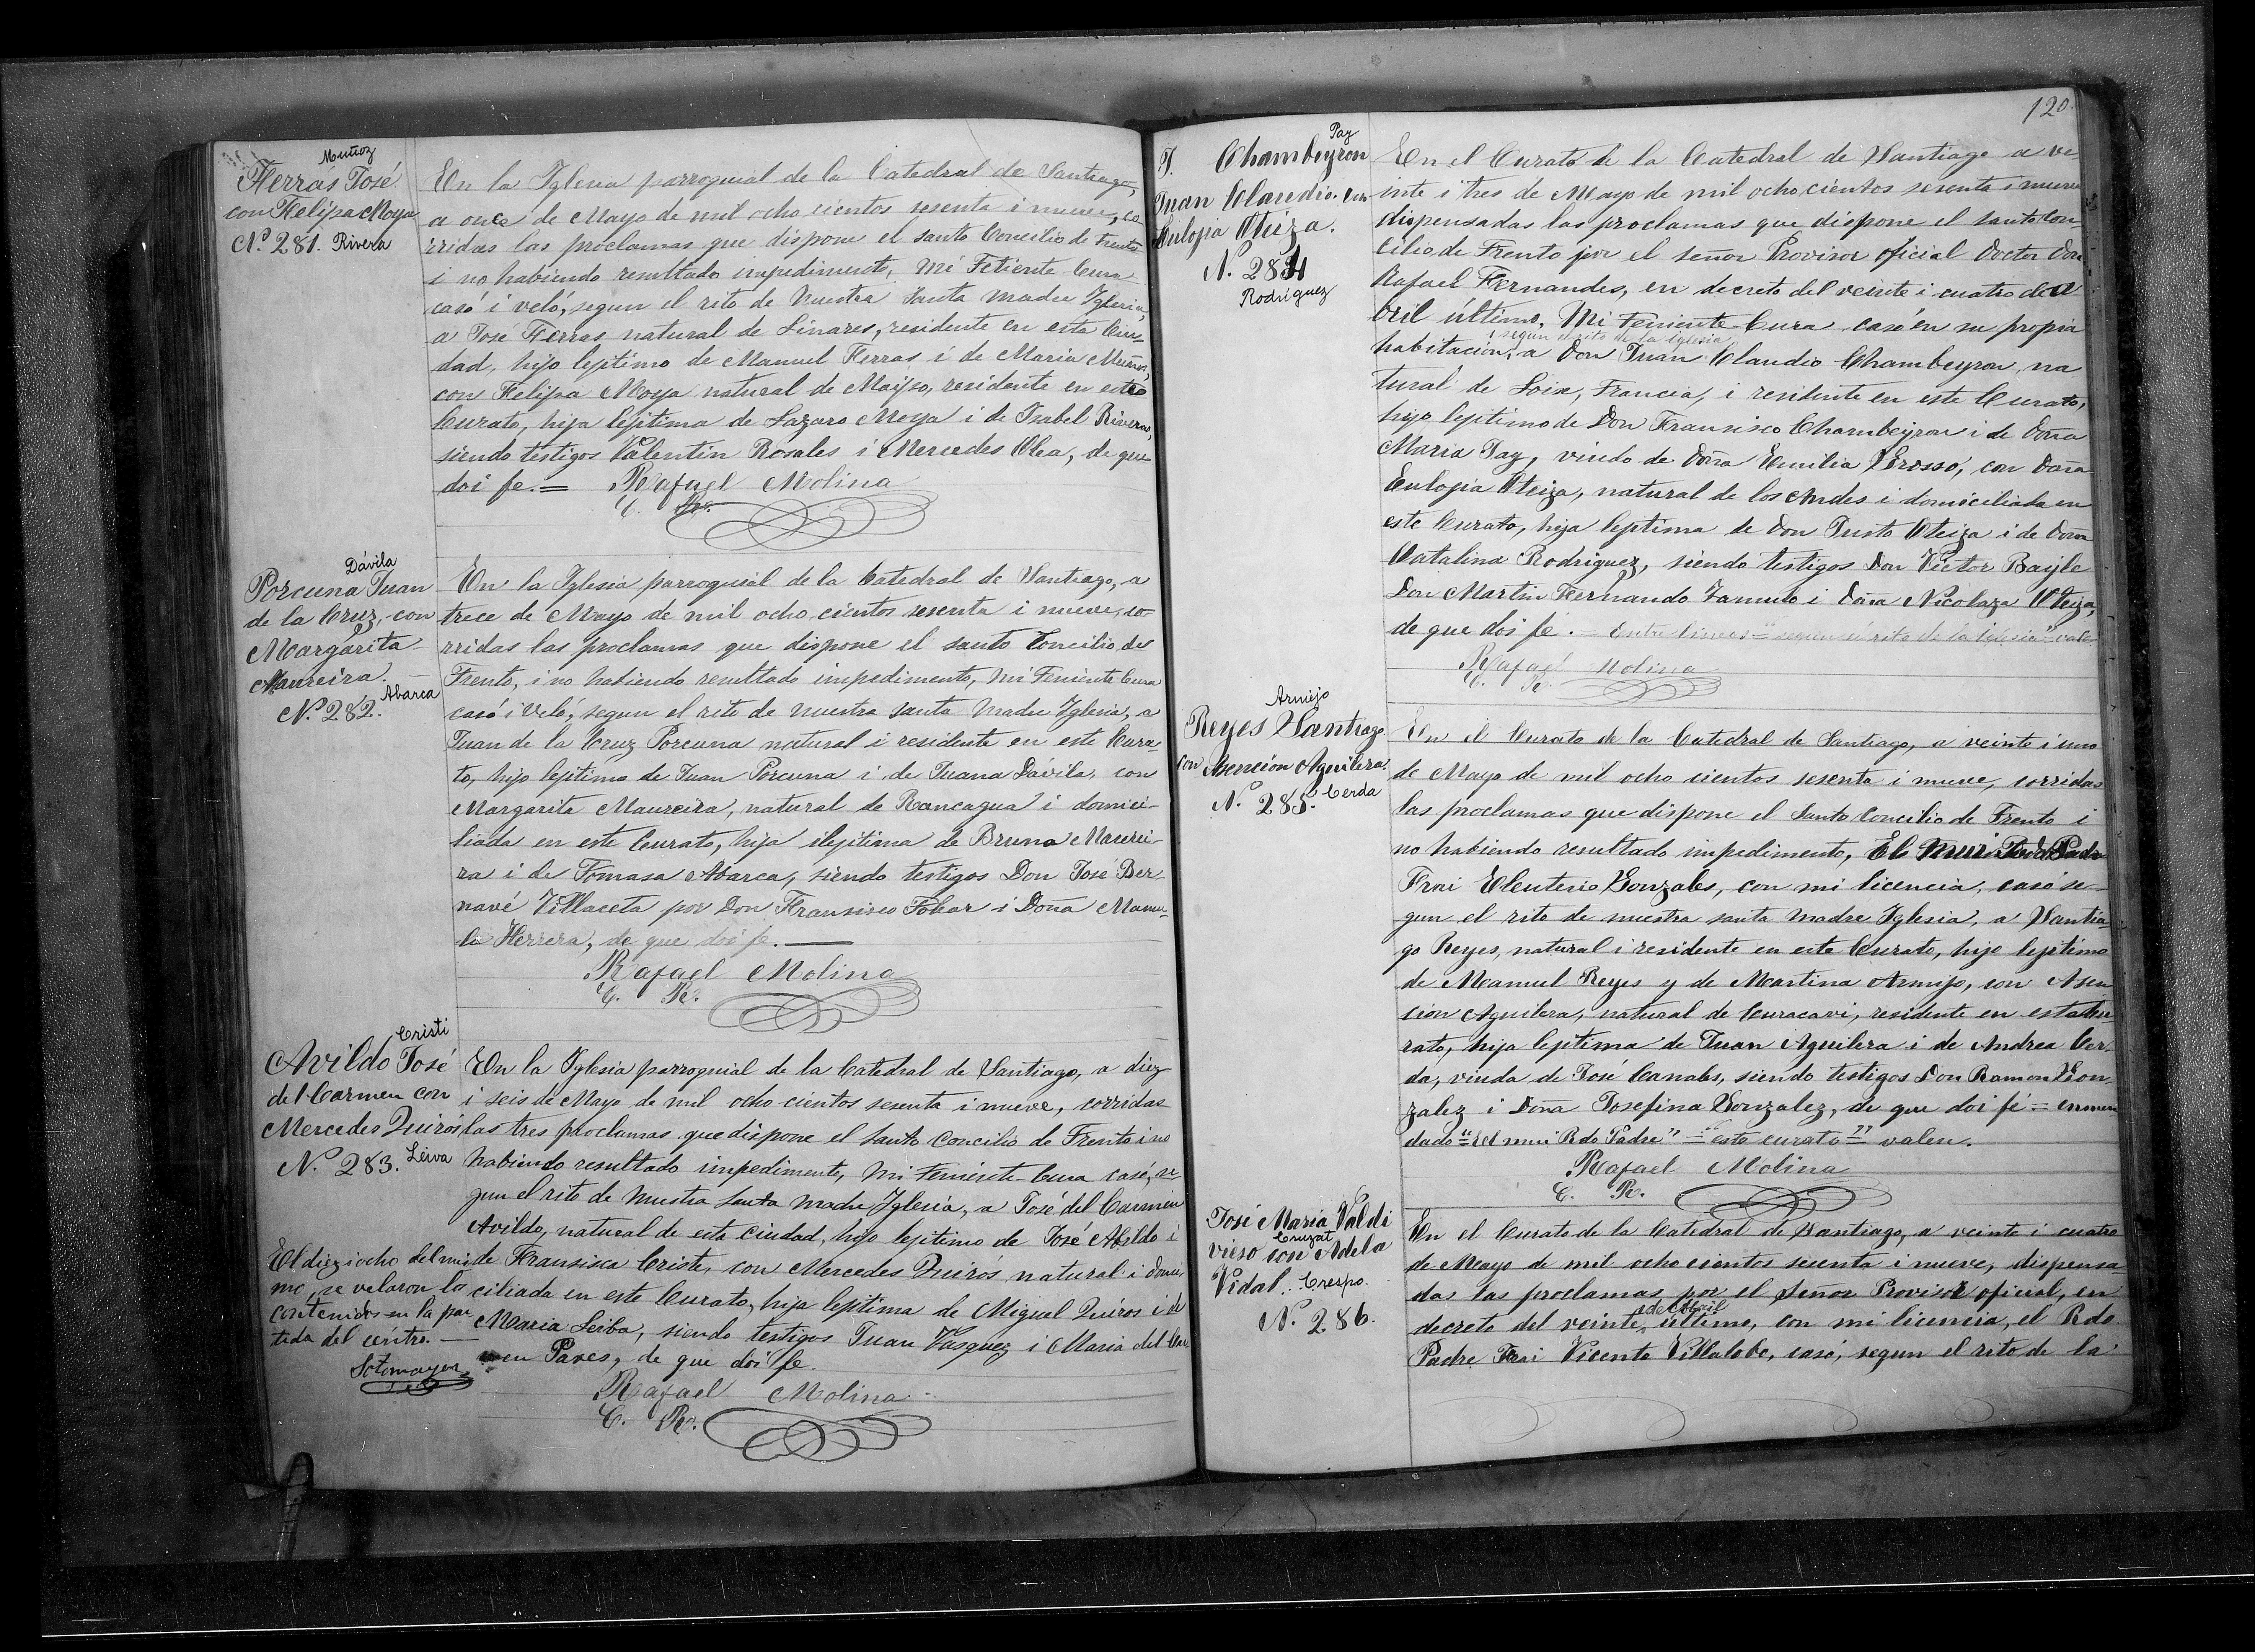 Muñoz
Herrás José
con Felipa Moya
N.º 281. Rivera
En la Iglesia parroquial de la Catedral de Santiago,
a once de Mayo de mil ocho cientos sesenta i nueve, co
rridas las proclamas que dispone el santo Concilio de Trento
i no habiendo resultado impedimento, Mi Teniente Cura
casó i veló, segun el rito de Nuestra Santa Madre Iglesia,
a José Herras natural de Linares, residente en esta Ciu-
dad, hijo lejitimo de Manuel Herras i de Maria Muños,
con Felipa Moya natural de Maipo, residente en este
Curato, hija lejitima de Lazaro Moya i de Isabel Riveras,
siendo testigos Valentin Rosales i Mercedes Olea, de que
doi fe.= Rafael Molina
C. R.
Dávila
Porcuna Juan
de la Cruz, con
Margarita
Maureira.
Abarca
N.º 282.
En la Iglesia parroquial de la Catedral de Santiago, a
trece de Mayo de mil ocho cientos sesenta i nueve, co-
rridas las proclamas que dispone el santo Concilio de
Trento, i no habiendo resultado impedimento, Mi Teniente Cura
casó i veló, segun el rito de nuestra santa Madre Iglesia, a
Juan de la Cruz Porcuna natural i residente en este Cura
to, hijo lejitimo de Juan Porcuna i de Juana Dávila, con
Margarita Maureira, natural de Rancagua i domici-
liada en este Curato, hija ilejitima de Bruno Maurei-
ra i de Tomasa Abarca, siendo testigos Don José Ber-
navé Villaceta por Don Fransisco Tobar i Doña Manue-
la Herrera, de que doi fe.
Rafael Molina
C. R.
Cristi
Avildo José
del Carmen con
Mercedes Quirós
N.º 283. Leiva
En la Iglesia parroquial de la Catedral de Santiago, a diez
i seis de Mayo de mil ocho cientos sesenta i nueve, corridas
las tres proclamas que dispone el santo Concilio de Trento i no
habiendo resultado impedimento, Mi Teniente Cura casó, se
gun el rito de Nuestra Santa Madre Iglesia, a José del Carmen
Avildo, natural de esta Ciudad, hijo lejitimo de José Abildo i
de Fransisca Cristi, con Mercedes Quirós natural i domi
ciliada en este Curato, hija lejitima de Migual Quirós i de
Maria Leiba, siendo testigos Juan Vasquez i Maria del Car
men Pares, de que doi fe.
Rafael Molina
C. R.
El diez i ocho del mis
mo, se velaron los
contenidos en la par
tida del centro.
Sotomayor
120.
Pay
J. Chambeyron
Juan Claudio. con
Eulojia Oteiza.
N. 284
Rodriguez
En el Curato de la Catedral de Santiago a ve
inte i tres de Mayo de mil ocho cientos sesenta i nueve
dispensadas las proclamas que dispone el santo Con-
cilio de Trento por el señor Provisor oficial Doctor Don
Rafael Fernandes, en decreto del veinte i cuatro de A-
bril último, Mi Teniente Cura casó en su propia
segun el rito de la Iglesia
habitación, a Don Juan Claudio Chambeyron na
tural de Loix, Francia, i residente en este Curato,
hijo lejitimo de Don Fransisco Chambeyron i de Doña
Maria Pay, viudo de Doña Emilia Grosso, con Doña
Eulojia Oteiza, natural de los Andes i domiciliada en
este Curato, hija lejitima de Don Justo Oteiza i de Doña
Catalina Rodriguez, siendo testigos Don Victor Bayle
Don Martin Fernando Zamudo i Doña Nicolaza Oteiza,
de que doi fé. — Entre lineas="segun el rito de la Iglesia" vale
Rafael Molina
C. R.
Armijo
Reyes Santiago
con Asención Aguilera.
N. 285. Cerda
En el Curato de la Catedral de Santiago, a veinte i uno
de Mayo de mil ocho cientos sesenta i nueve, corridas
las proclamas que dispone el Santo Concilio de Trento i
no habiendo resultado impedimento, El mui Rdo Padre
Frai Eleuterio Gonzales, con mi licencia, casó se-
gun el rito de nuestra santa Madre Iglesia, a Santia-
go Reyes, natural i residente en este Curato, hijo lejitimo
de Manuel Reyes y de Martina Armijo, con Asen
cion Aguilera, natural de Curacavi, residente en este Cu
rato, hija lejitima de Juan Aguilera i de Andrea Cer-
da, viuda de José Canales, siendo testigos Don Ramon Gon
zalez i Doña Josefina Gonzalez, de que doi fé = enmen
dado="El mui Rdo Padre"="este curato"= valen.
Rafael Molina
C. R.
José Maria Valdi
Cruzat
vieso con Adela
Vidal. Crespo.
N. 286.
En el Curato de la Catedral de Santiago, a veinte i cuatro
de Mayo de mil ocho cientos sesenta i nueve, dispensa-
das las proclamas, por el Señor Provisor oficial, en
de Abril
decreto del veinte, último, con mi licencia, el Rdo
Padre Frai Vicente Villalobo, casó, segun el rito de la